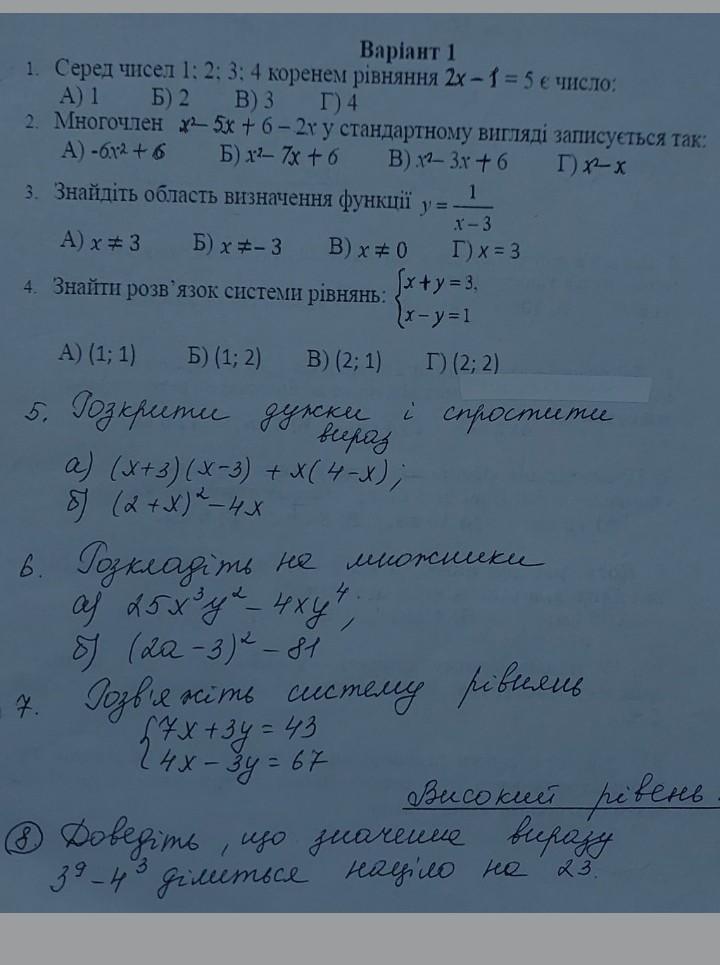 Варіант 1
1. Серед чисел 1; 2; 3; 4 коренем рівняння 2x – 1 = 5 є число:
А) 1 Б) 2 В) 3 Г) 4
2. Многочлен x² – 5x + 6 – 2x у стандартному вигляді записується так:
А) -6x² + 6 Б) x² – 7x + 6 В) x² – 3x + 6 Г) x² – x
3. Знайдіть область визначення функції y = 1/(x – 3)
А) x ≠ 3 Б) x ≠ – 3 В) x ≠ 0 Г) x = 3
4. Знайти розв’язок системи рівнянь: {x + y = 3,
{x – y = 1
А) (1; 1) Б) (1; 2) В) (2; 1) Г) (2; 2)
5. Розкрити дужки і спростити
вираз
а) (x+3)(x-3) + x(4-x);
б) (2+x)² – 4x
6. Розкладіть на множники
а) 25x³y² – 4xy⁴;
б) (2a – 3)² – 81
7. Розв'яжіть систему рівнянь
{7x + 3y = 43
{4x – 3y = 67
Високий рівень.
8. Доведіть, що значення виразу
3⁹ – 4³ ділиться націло на 23.